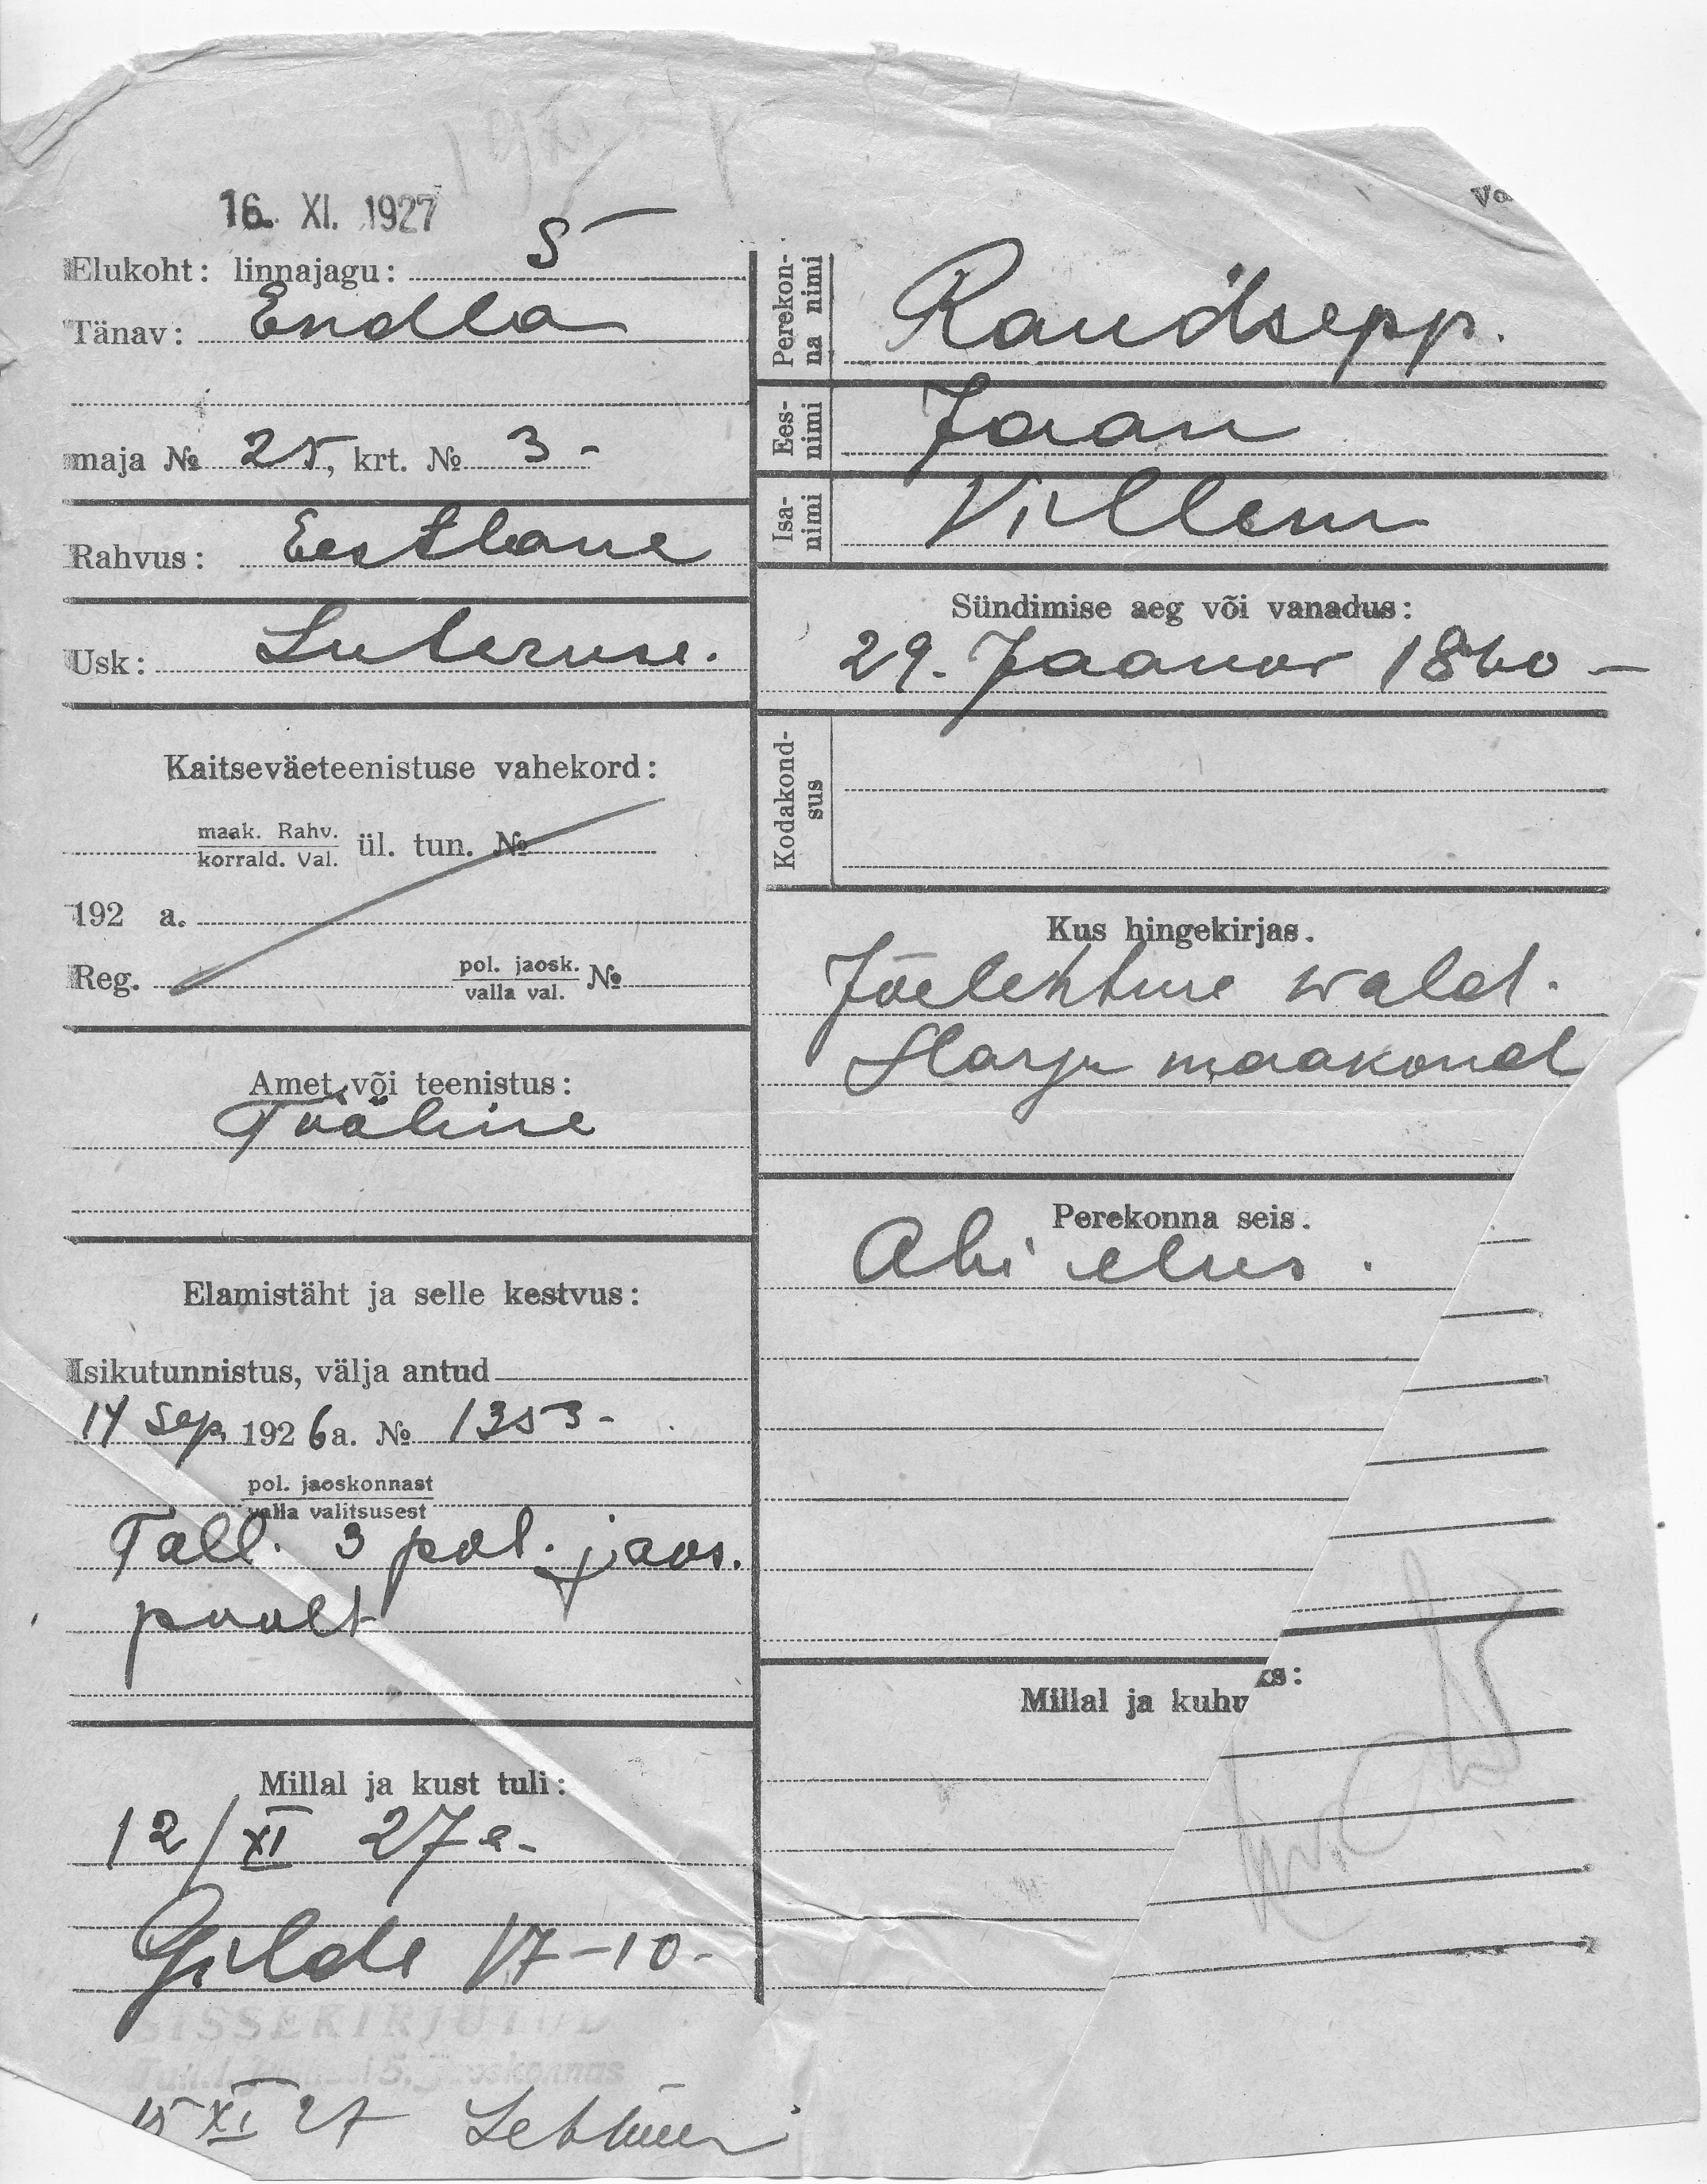 16. XI. 1927
Elukoht: linnajagu: 5
Tänav: Endla
maja № 25, krt. № 3 -
Rahvus: Eestlane
Usk: Luteruse.
Kaitseväeteenistuse vahekord:
maak. Rahv.
korrald. Val. ül. tun. №
192 a.
Reg. pol. jaosk.
valla val. №
Amet või teenistus:
Tööline
Elamistäht ja selle kestvus:
Isikutunnistus, välja antud
14 Sep. 1926 a. № 1353 -
pol. jaoskonnast
valla valitsusest
Tall. 3 pol. jaos.
poolt
Millal ja kust tuli:
12/XI 27 a -
Gilde 17-10 -
SISSEKIRJUTUD
5. Jaoskonnas
15 XI 27
Va
Perekon-
na nimi
Raudsepp.
Ees-
nimi
Jaan
Isa-
nimi
Villem
Sündimise aeg või vanadus:
29. Jaanuar 1860 -
Kodakond-
sus
Kus hingekirjas.
Jõelehtme wald.
Harju maakond
Perekonna seis.
Abi elus.
Millal ja kuhu
ks: